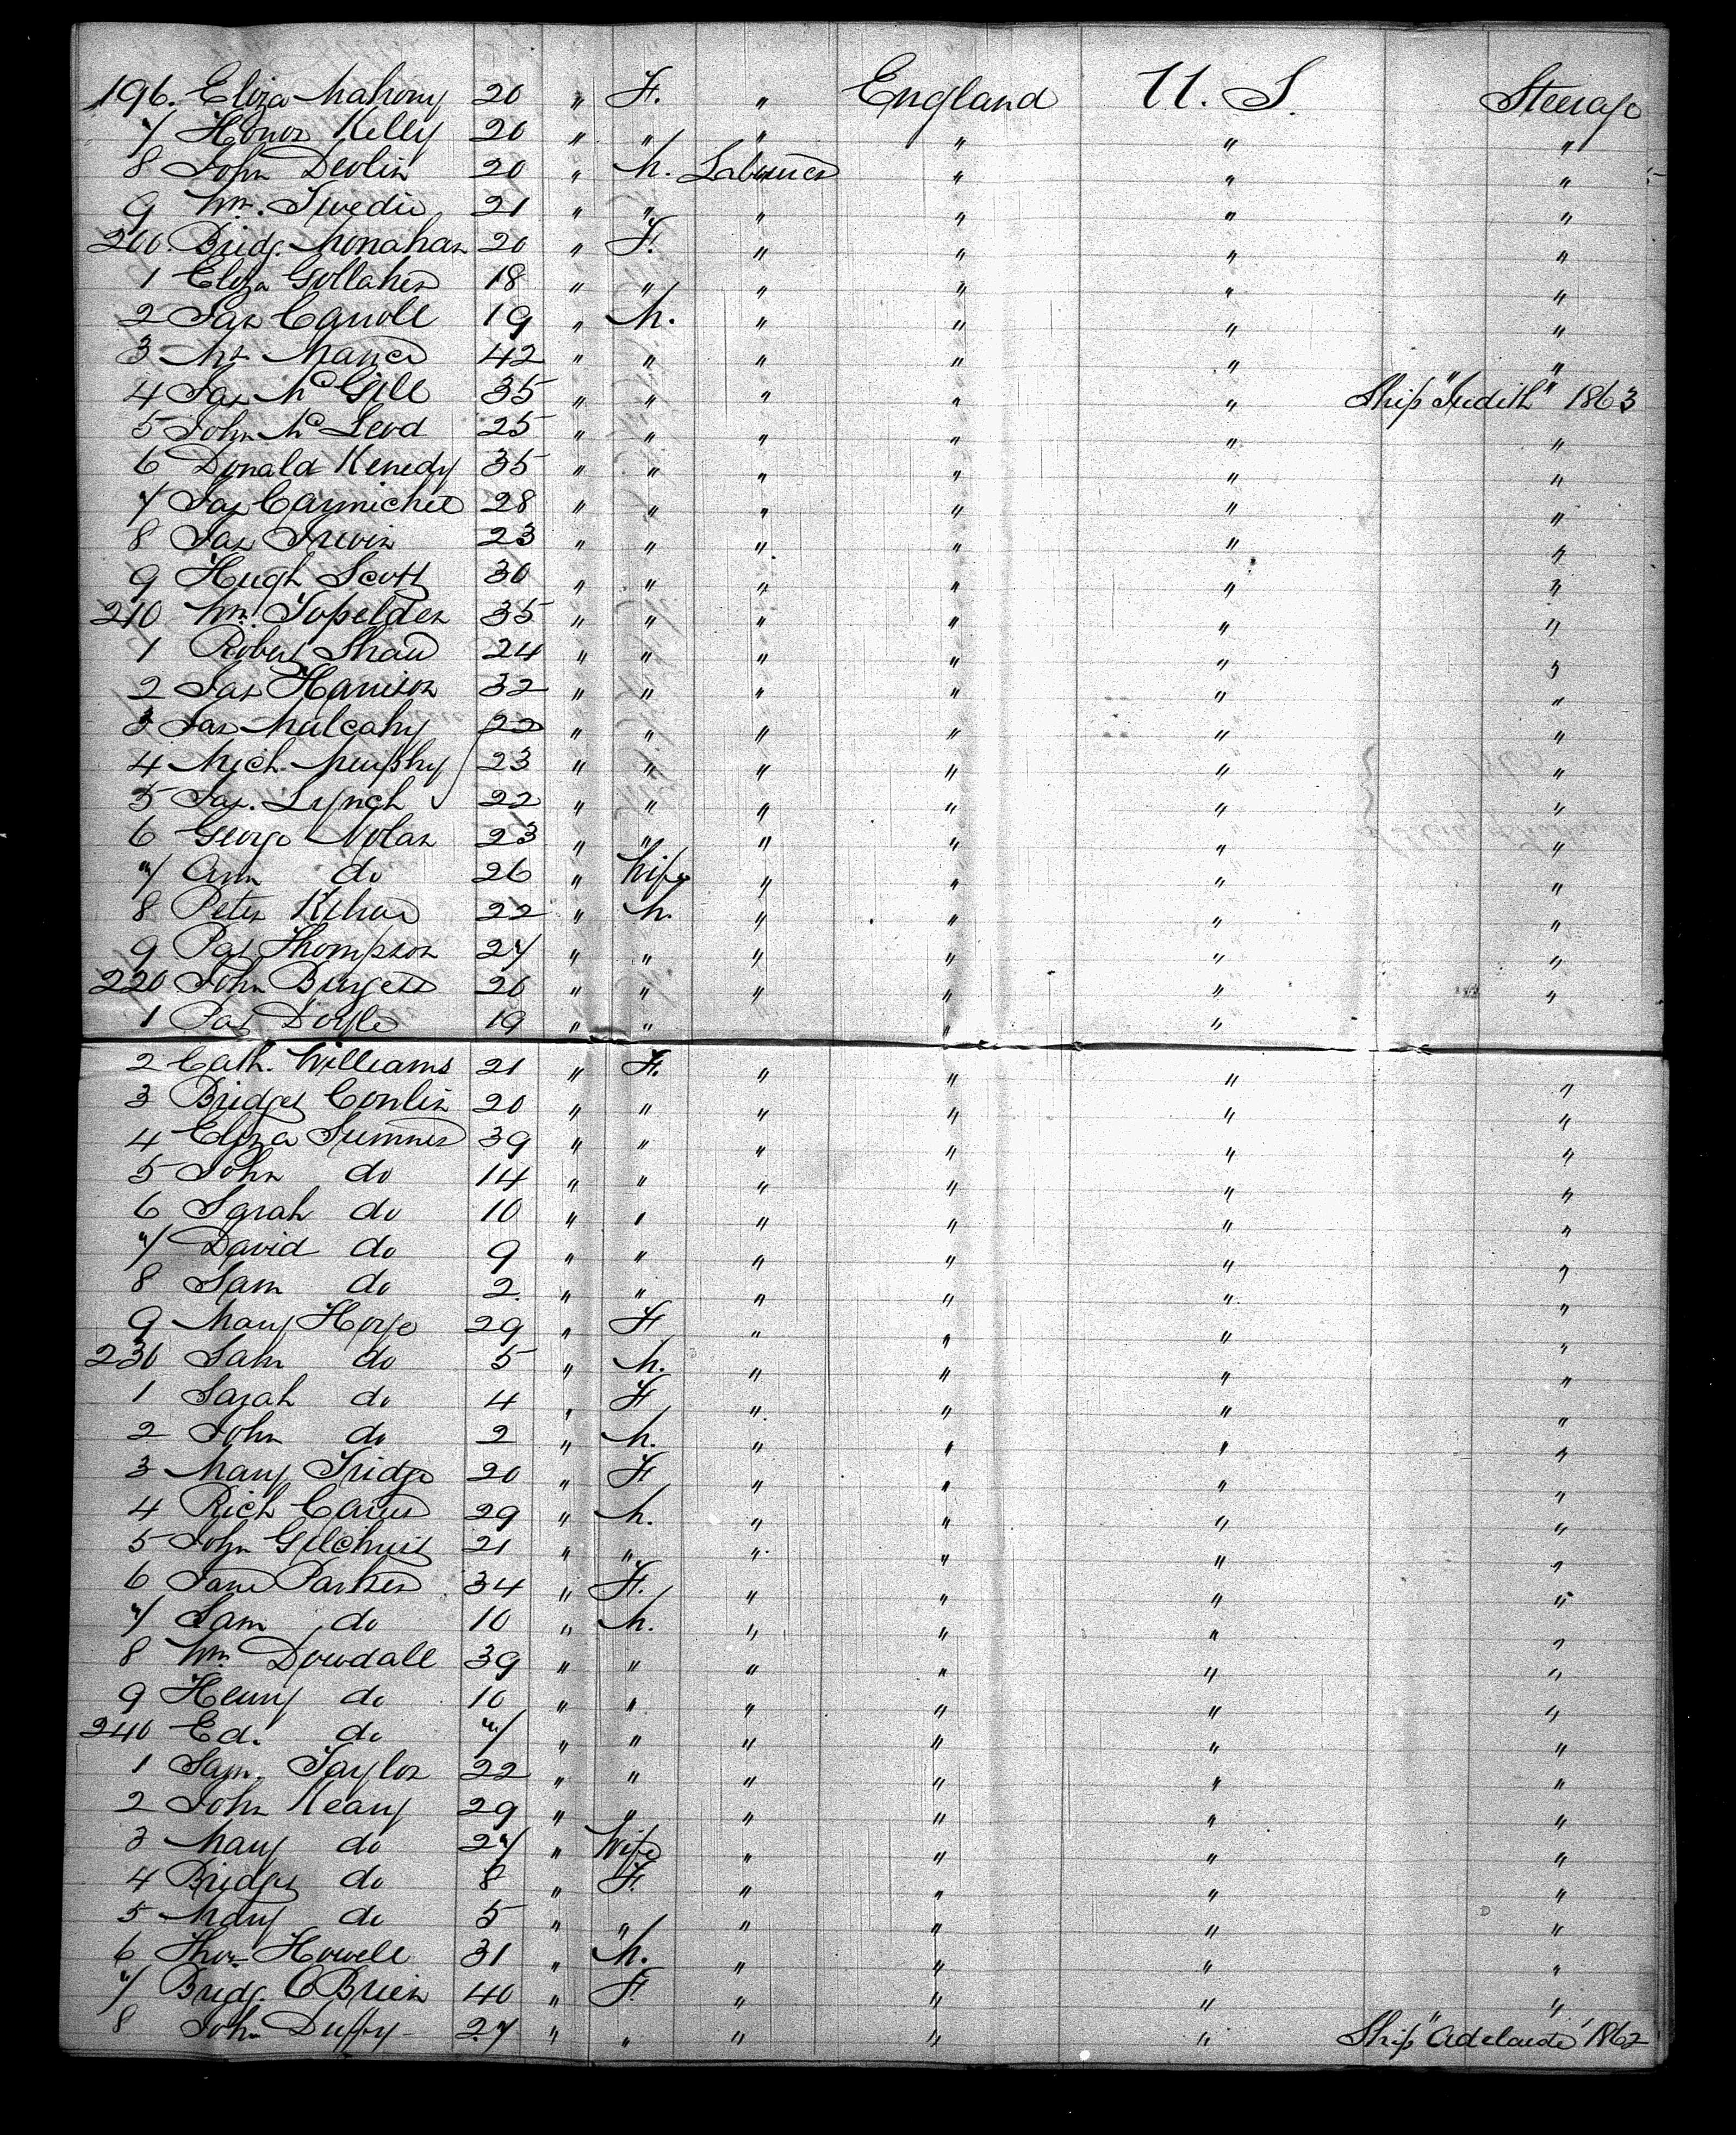 196. Eliza Mahony 20 " F. " England U. S. Steerage
7 Honor Kelly 20 " " " " " "
8 John Devlin 20 " M. Labourer " " "
9 Wm. Swedie 21 " " " " " "
200. Bridg. Monahan 20 " F. " " " "
1 Eliza Gollaher 18 " " " " " "
2 Jas 19 " M. " " " "
3 42 " " " " " "
4 Jas McGill 35 " " " " " Ship "Judith" 1863
5 John McLeod 25 " " " " " "
6 Donald Kenedy 35 " " " " " "
7 Jas Carmichel 28 " " " " " "
8 Jas Irwin 23 " " " " " "
9 Hugh Scott 30 " " " " " "
210 Wm. 35 " " " " " "
1 Robert Shaw 24 " " " " " "
2 Jas Harrison 32 " " " " " "
3 Jas Mulcahy 22 " " " " " "
4 Mich. Murphy 23 " " " " " "
5 Jas. Lynch 22 " " " " " "
6 George Nolan 23 " " " " " "
7 Ann do 26 " Wife " " " "
8 Peter 22 " M. " " " "
9 Pat Thompson 27 " " " " " "
220 John Burgess 20 " " " " " "
1 Pat Doyle 19 " " " "
2 Cath. Williams 21 " F. " " " "
3 Bridget Conlin 20 " " " " " "
4 Eliza Sumner 39 " " " " " "
5 John do 14 " " " " " "
6 Sarah do 10 " " " " " "
7 David do 9 " " " " " "
8 Sam do 2 " " " " " "
9 Mary Horge 29 " F " " " "
230 Sam do 5 " M. " " " "
1 Sarah do 4 " F " " " "
2 John do 2 " M. " " " "
3 Mary Fridge 20 " F " " " "
4 Rich 29 " M. " " " "
5 John Gilchrist 21 " " " " " "
6 Jane Parker 34 " F. " " " "
7 Sam do 10 " M. " " " "
8 Wm Dowdall 39 " " " " " "
9 Henry do 10 " " " " " "
240 Ed. do 7 " " " " " "
1 Sam. Taylor 22 " " " " " "
2 John Keany 29 " " " " " "
3 Mary do 27 " Wife " " " "
4 Bridget do 8 " F. " " " "
5 Mary do 5 " " " " " "
6 Thos Howell 31 " M. " " " "
7 Bridg. OBrien 40 " F. " " " "
8 John Duffy 27 " " " " " Ship "Adelaide" 1862